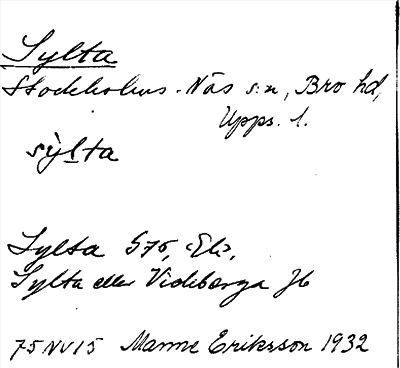 Sylta
Stockholms-Näs s:n, Bro hd,
Upps. l.
sỳlta
Sylta 576, Ek.,
Sylta eller Videberga Jb
75NV15 Manne Eriksson 1932